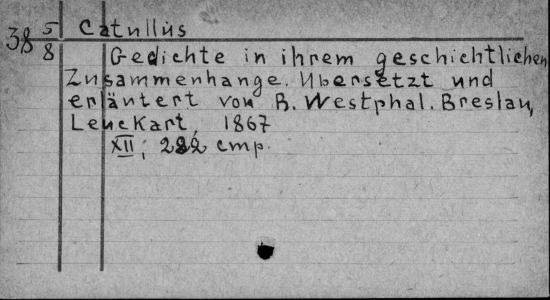 38 5/8 Catullus
Gedichte in ihrem geschichtlichen
Zusammenhange. Übersetzt und
erläutert von R. Westphal. Breslau,
Leuckart, 1867
XII; 282 стр.